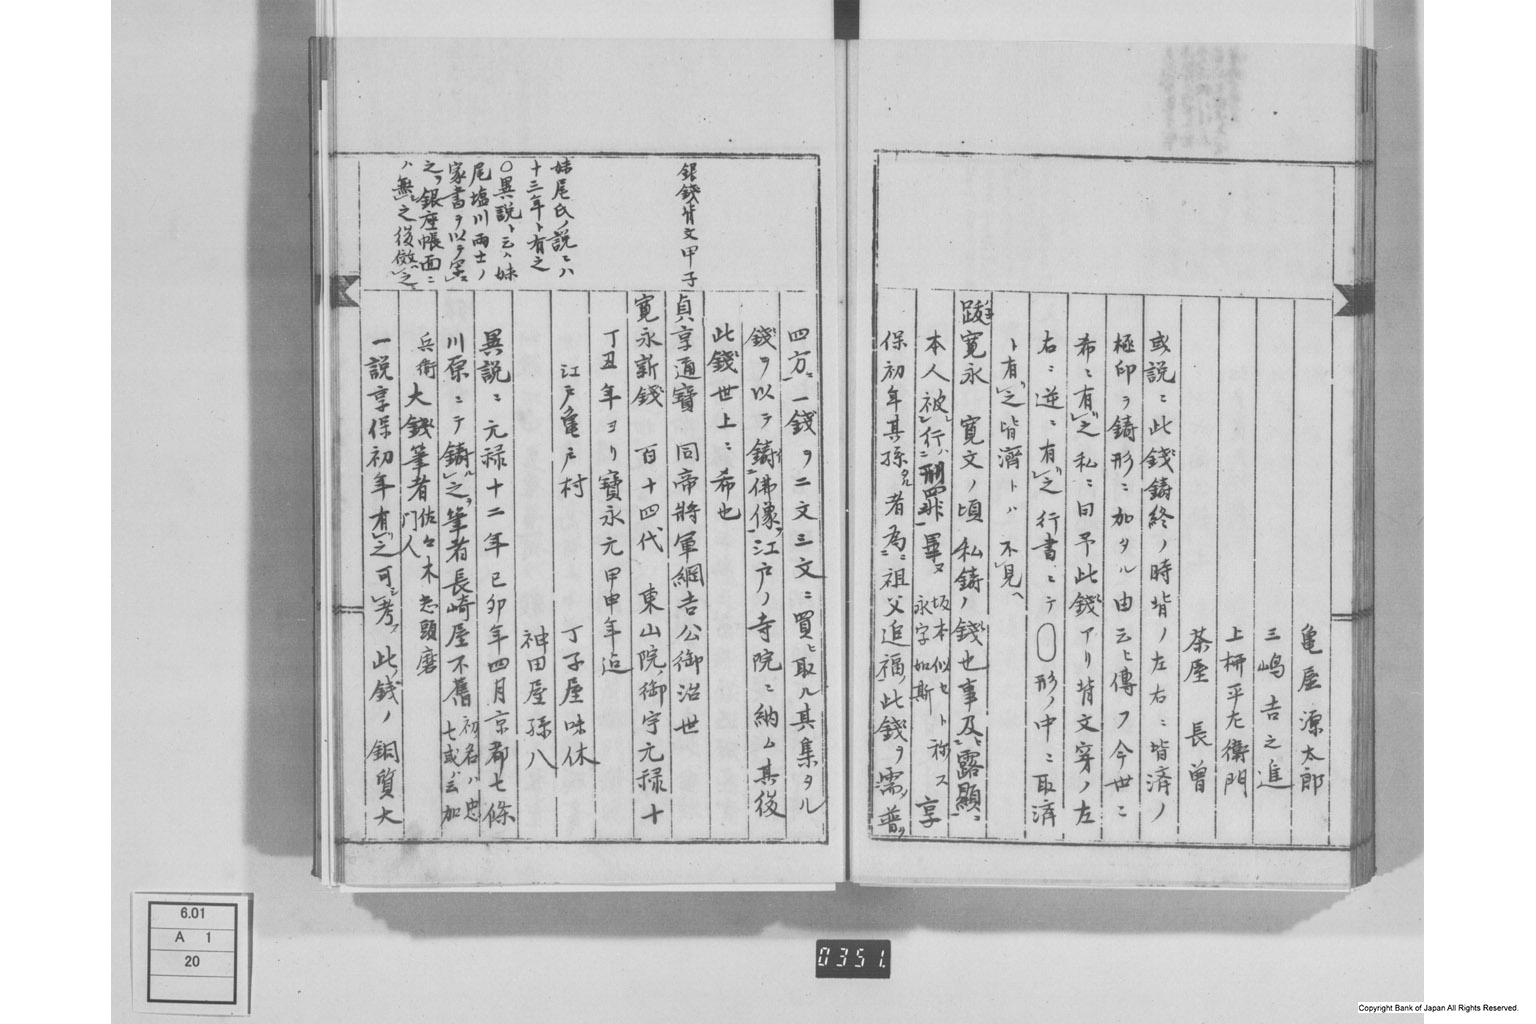 亀屋源太郎
三嶋吉之進
上柳平左衛門
茶屋長曽
或説ニ此錢鋳終ノ時背ノ左右ニ皆済ノ
極印ヲ鋳形ニ加タル由云ヒ傳フ今世ニ
希ニ有之私ニ曰予此錢アリ背文穿ノ左
右ニ逆ニ有之行書ニテ〇形ノ中ニ取済
ト有之皆済トハ不見
跋寛永 寛文ノ頃私鋳ノ錢也事及露顕ニ
本人被行刑罪畢又坂本似セト祢ス永字如斯 享
保初年其孫ナル者為ニ祖父追福ノ此錢ヲ濡普ク
四方ニ一錢ヲ二文三文ニ買ヒ取ル其集タル
錢ヲ以テ鋳佛像江戸ノ寺院ニ納ム其後
此錢世上ニ希也
銀錢背文甲子
貞享通寶 同帝將軍綱吉公御治世
寛永新錢 百十四代 東山院御宇元禄十
丁丑年ヨリ寶永元甲申年迠
江戸亀戸村
丁子屋味休
神田屋孫八
妹尾氏ノ説ニハ
十三年ト有之
〇異説ト云ハ妹
尾塩川両士ノ
家書ヲ以テ寫
之銀座帳面ニ
ハ無之後倣之
異説ニ元禄十二年已卯年四月京都七條
川原ニテ鋳之筆者長崎屋不舊初名ハ忠七或云加
兵衛 大錢筆者佐々木志頭磨門人
一説享保初年有之可考此錢ノ銅質大
6.01
A 1
20
0351.
Copyright Bank of Japan All Rights Reserved.